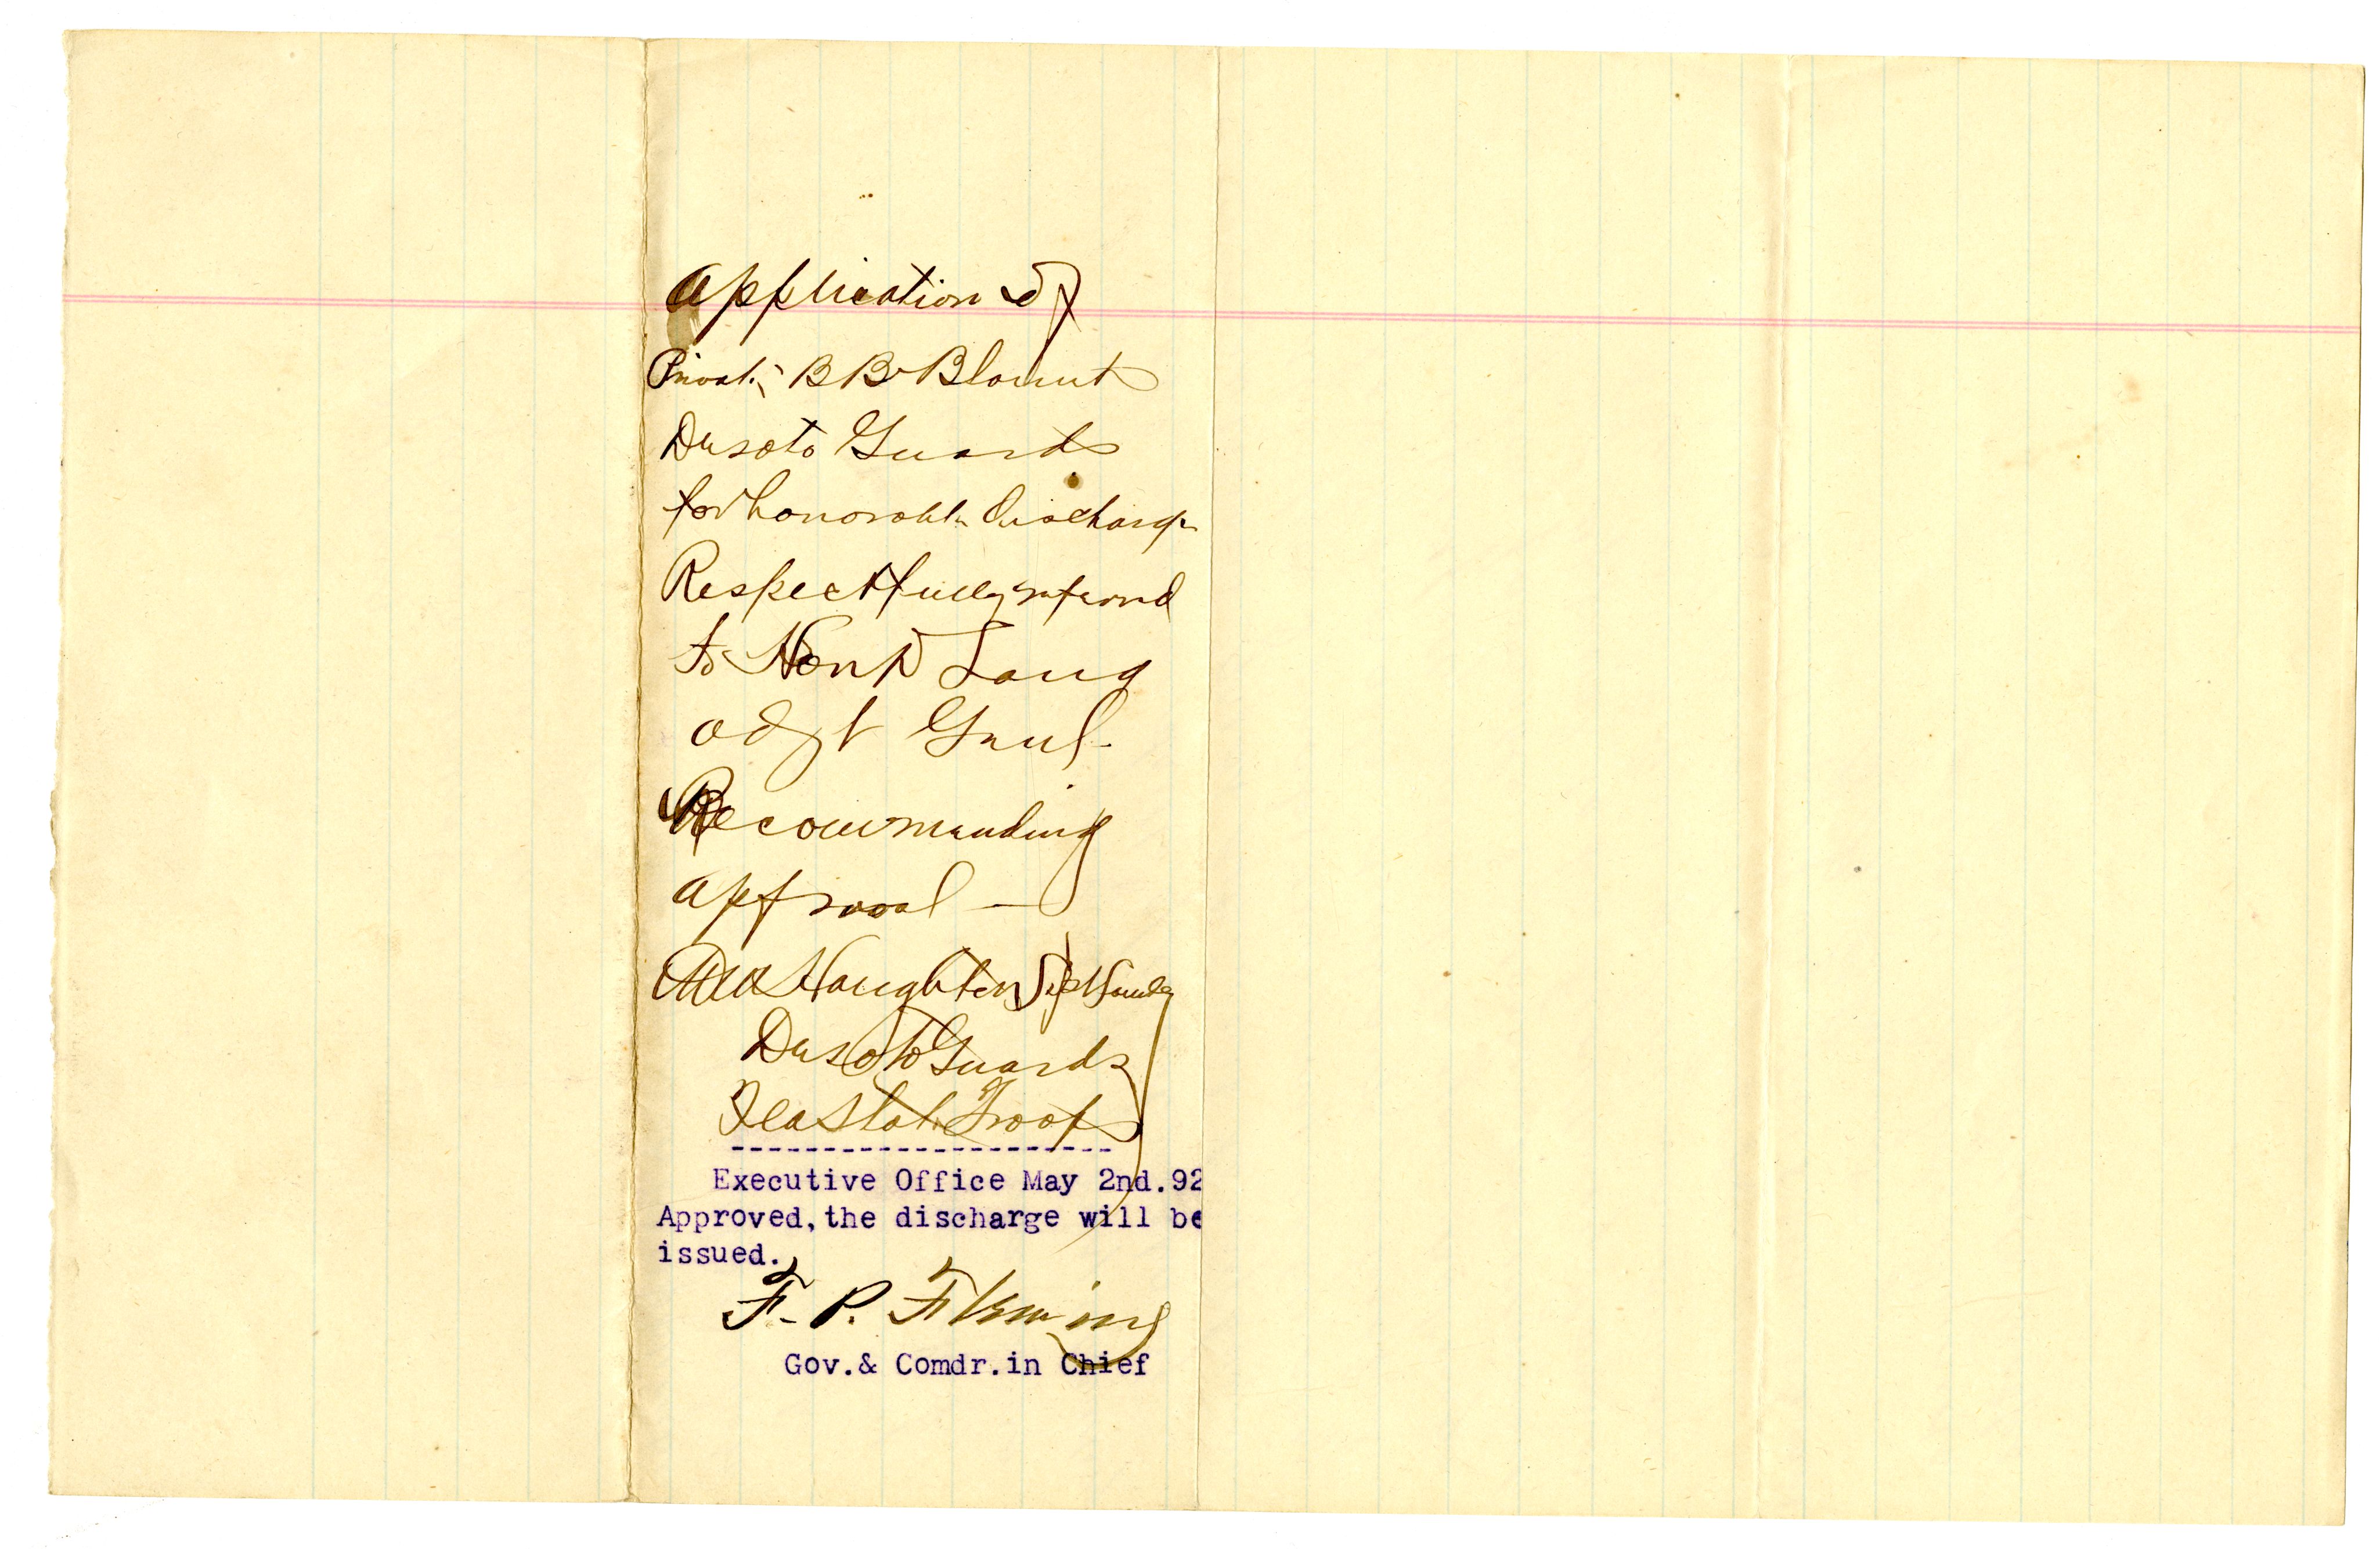 Application of
Private B B Blount
Desoto Guards
for honorable discharge
Respectfully referred
to Hon D Lang
adgt Genl-
Recommending
approval —
Haughton
Desoto Guards
Fla State Troops
--------------------
Executive Office May 2nd.92
Approved,the discharge will be
issued.
F. P. Fleming
Gov.& Comdr.in Chief